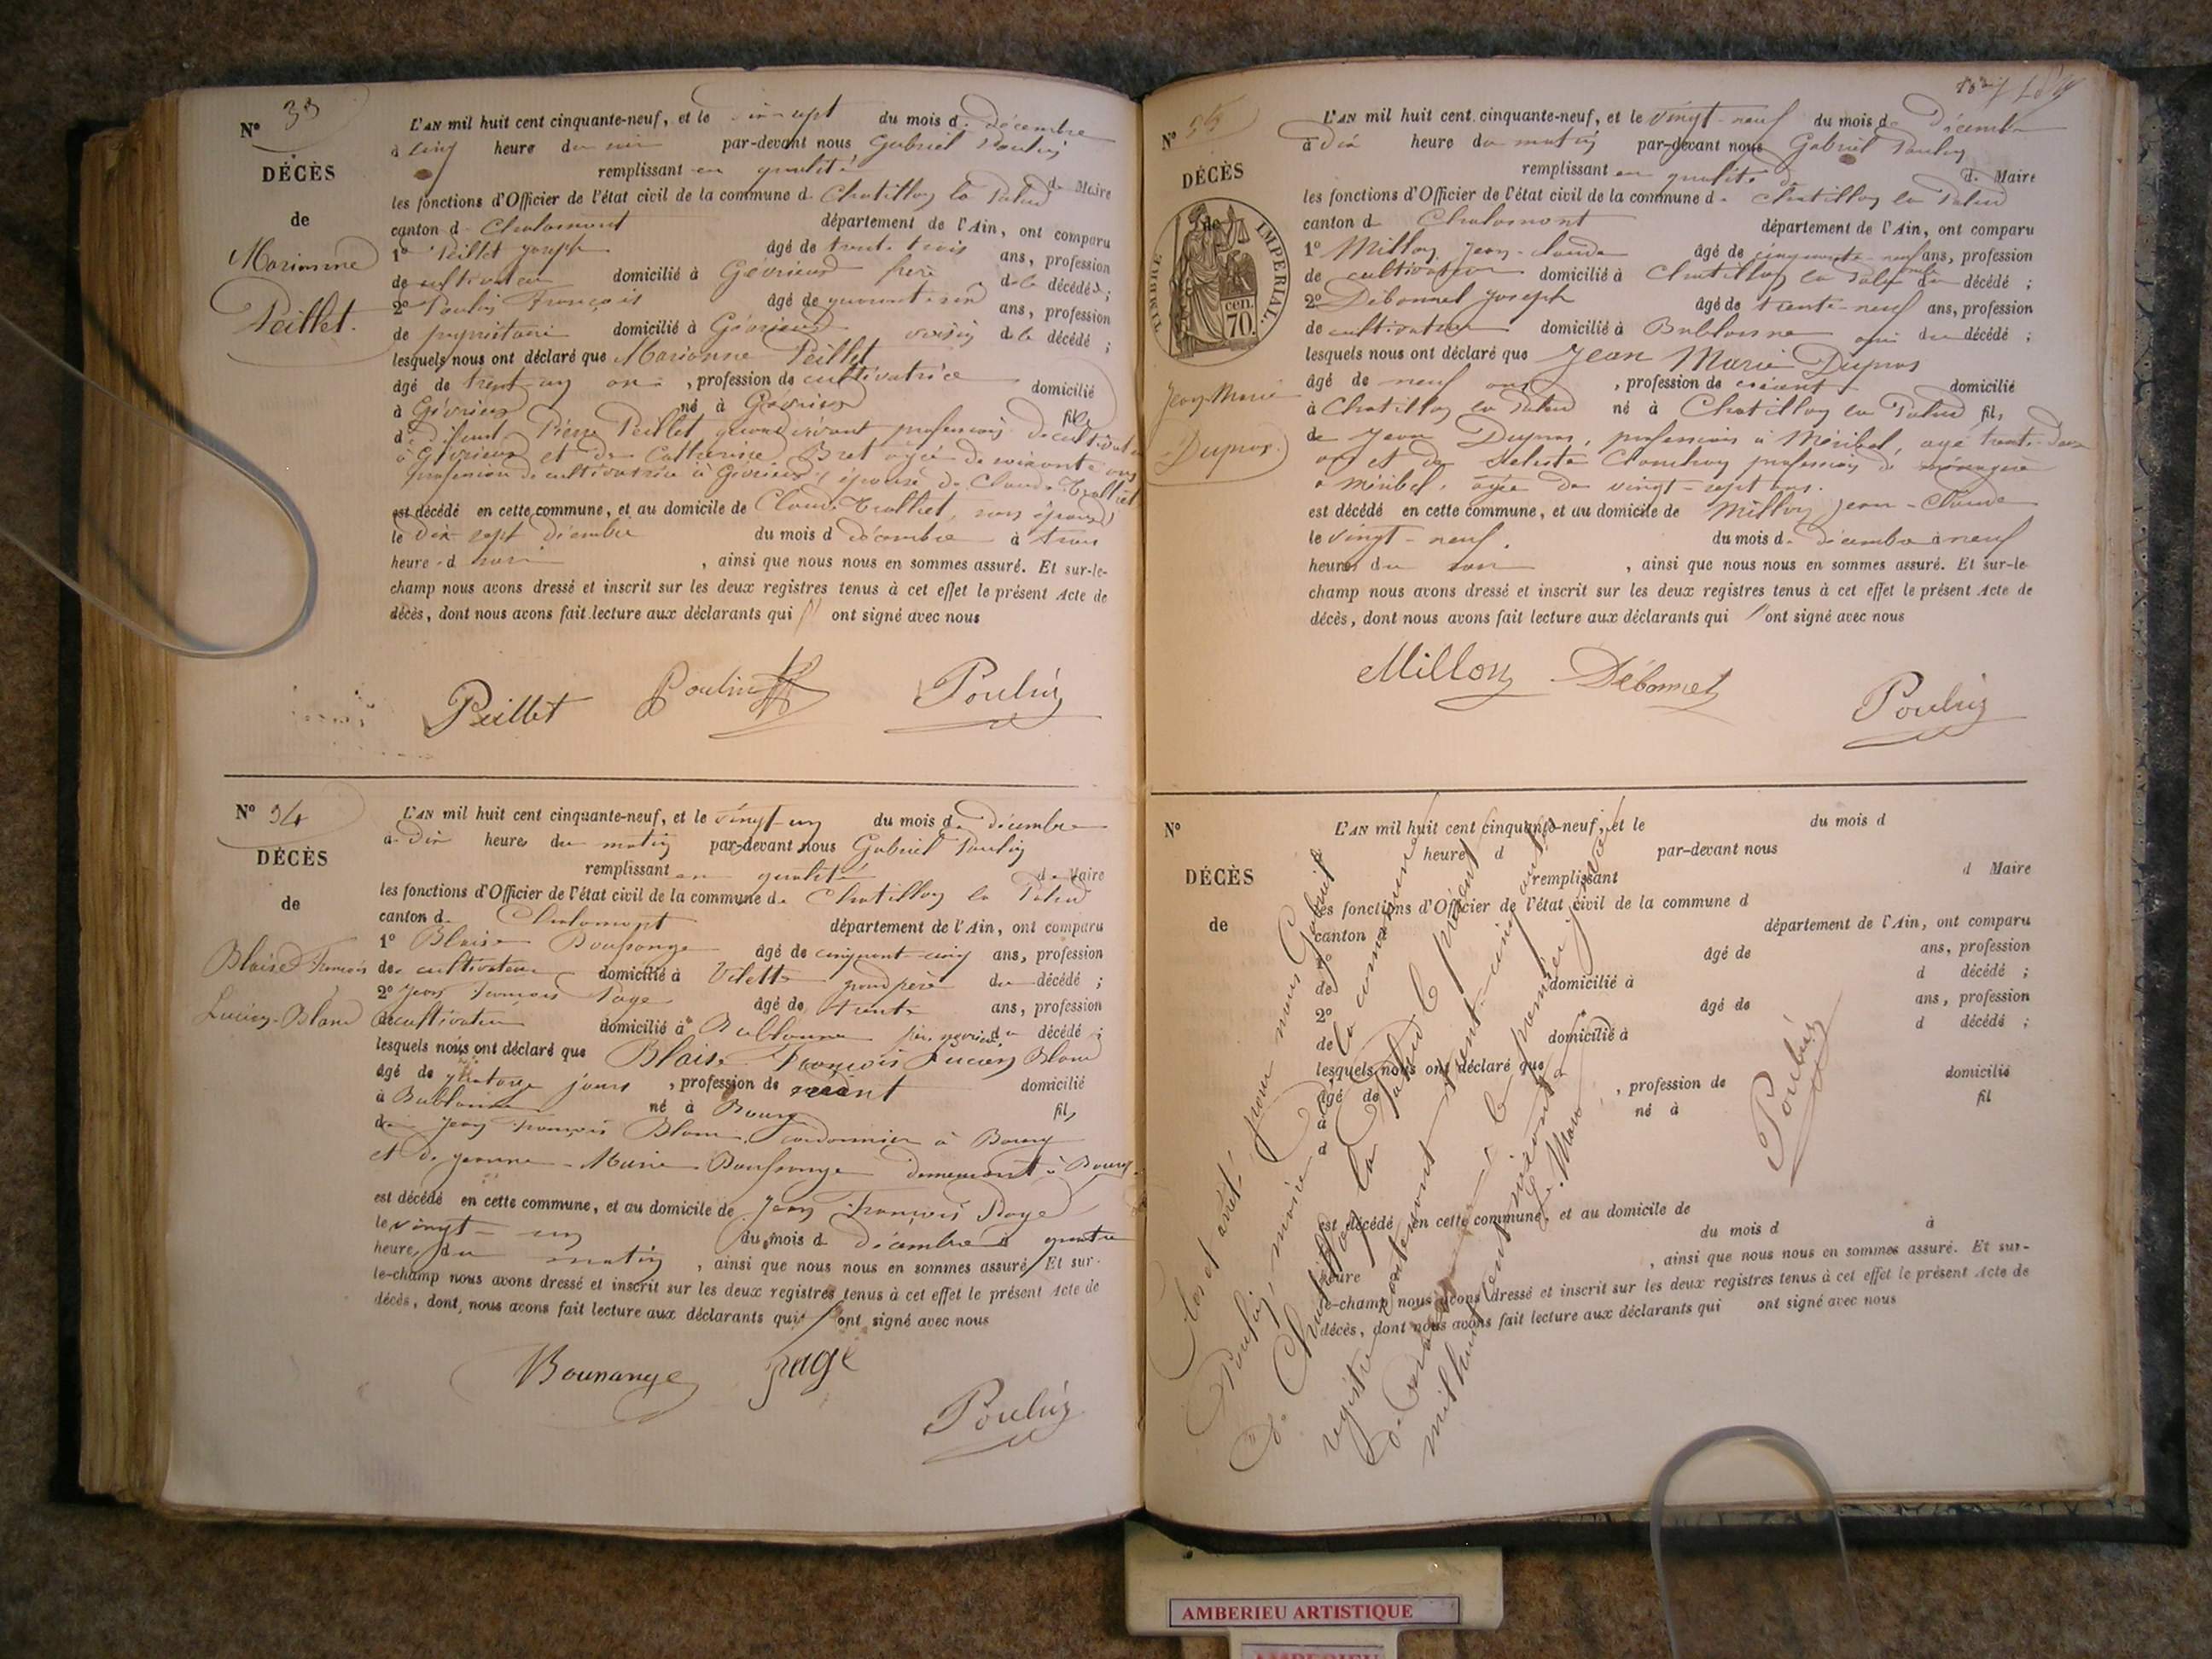 N° 33
DÉCÈS
de
Marianne
Peillet.
L'AN mil huit cent cinquante-neuf, et le dix-sept du mois d. décembre
à cinq heure du soir par-devant nous Gabriel Poulin
remplissant en qualité de Maire
les fonctions d'Officier de l'état civil de la commune d. Chatillon la Palud
canton d. Chalamont département de l'Ain, ont comparu
1° Peillet Joseph âgé de trente trois ans, profession
de cultivateur domicilié à Gévrieux frère de la décédée ;
2° Poulin François âgé de quarante six ans, profession
de propriétaire domicilié à Gévrieux voisin de la décédé ;
lesquels nous ont déclaré que Marianne Peillet
âgé de trent-un ans , profession de cultivatrice domicilié
à Gévrieux né à Gévrieux fille
de défunt Pierre Peillet quand vivant profession de cultivateur
à Gévrieux et de Catherine Bret agée de soixante ans
profession de cultivatrice à Gévrieux, épouse de Claude Trolliet
est décédé en cette commune, et au domicile de Claude Trolliet, son époux
le dix-sept décembre du mois d décembre à trois
heure d soir , ainsi que nous nous en sommes assuré. Et sur-le-
champ nous avons dressé et inscrit sur les deux registres tenus à cet effet le présent Acte de
décès, dont nous avons fait lecture aux déclarants qui ont signé avec nous
Peillet Poulin Poulin
N° 34
DÉCÈS
de
Blaise François
Lucien Blanc
L'AN mil huit cent cinquante-neuf, et le vingt-un du mois de décembre
à Dix heures du matin par-devant nous Gabriel Poulin
remplissant en qualité de Maire
les fonctions d'Officier de l'état civil de la commune de Chatillon la Palud
canton de Chalamont département de l'Ain, ont comparu
1° Blaise âgé de cinquant-cinq ans, profession
de cultivateur domicilié à Vilette grand père du décédé ;
2° Jean François Page âgé de trente ans, profession
de cultivateur domicilié à Bublanne du décédé ;
lesquels nous ont déclaré que Blaise François Lucien Blanc
âgé de quatorze jours , profession de néant domicilié
à Bublanne né à Bourg fils
de Jean François Blanc, cordonnier à Bourg
et de Jeanne-Marie demeurant à Bourg
est décédé en cette commune, et au domicile de Jean François Page
le vingt-un du mois d décembre à quatre
heures du matin , ainsi que nous nous en sommes assuré Et sur-
le-champ nous avons dressé et inscrit sur les deux registres tenus à cet effet le présent Acte de
décès, dont nous avons fait lecture aux déclarants qui ont signé avec nous
page
Poulin
N° 35
DÉCÈS
de
TIMBRE IMPÉRIAL.
cen. 70.
Jean-Marie
Dupras
L'AN mil huit cent cinquante-neuf, et le vingt-neuf du mois de Décembre
à dix heure du matin par-devant nous Gabriel Poulin
remplissant en qualité d. Maire
les fonctions d'Officier de l'état civil de la commune d. Chatillon la Palud
canton d. Chalamont département de l'Ain, ont comparu
1° Millon Jean-Claude âgé de cinquante-neuf ans, profession
de cultivateur domicilié à Chatillon la Palud oncle du décédé ;
2° Débonnet Joseph âgé de trente-neuf ans, profession
de cultivateur domicilié à Bublanne ami du décédé ;
lesquels nous ont déclaré que Jean Marie Dupras
âgé de neuf ans , profession de néant domicilié
à Chatillon la Palud né à Chatillon la Palud fils
de Jean Dupras, profession à Méribel, agé trente-deux
ans et de profession de ménagère
à Méribel, agée de vingt-sept ans.
est décédé en cette commune, et au domicile de Millon Jean-Claude
le vingt-neuf. du mois d. décembre à neuf
heures du , ainsi que nous nous en sommes assuré. Et sur-le
champ nous avons dressé et inscrit sur les deux registres tenus à cet effet le présent Acte de
décès, dont nous avons fait lecture aux déclarants qui ont signé avec nous
Millon Débonnet
Poulin
N°
DÉCÈS
de
L'AN mil huit cent cinquante-neuf, et le du mois d
heure d par-devant nous
remplissant d Maire
les fonctions d'Officier de l'état civil de la commune d
canton d département de l'Ain, ont comparu
1° âgé de ans, profession
de domicilié à d décédé ;
2° âgé de ans, profession
de domicilié à d décédé ;
lesquels nous ont déclaré que
âgé de , profession de domicilié
à né à fil
d
est décédé en cette commune, et au domicile de
du mois d à
heure , ainsi que nous nous en sommes assuré. Et sur-
le-champ nous avons dressé et inscrit sur les deux registres tenus à cet effet le présent Acte de
décès, dont nous avons fait lecture aux déclarants qui ont signé avec nous
Clos et arrêté par nous Gabriel
Poulin, maire de la commune
de Chatillon la Palud le présent
registre contenant trent-cinq actes
de Décès le premier janvier
mil huit cent soixante
Le Maire
Poulin
AMBERIEU ARTISTIQUE
AMBERIEU